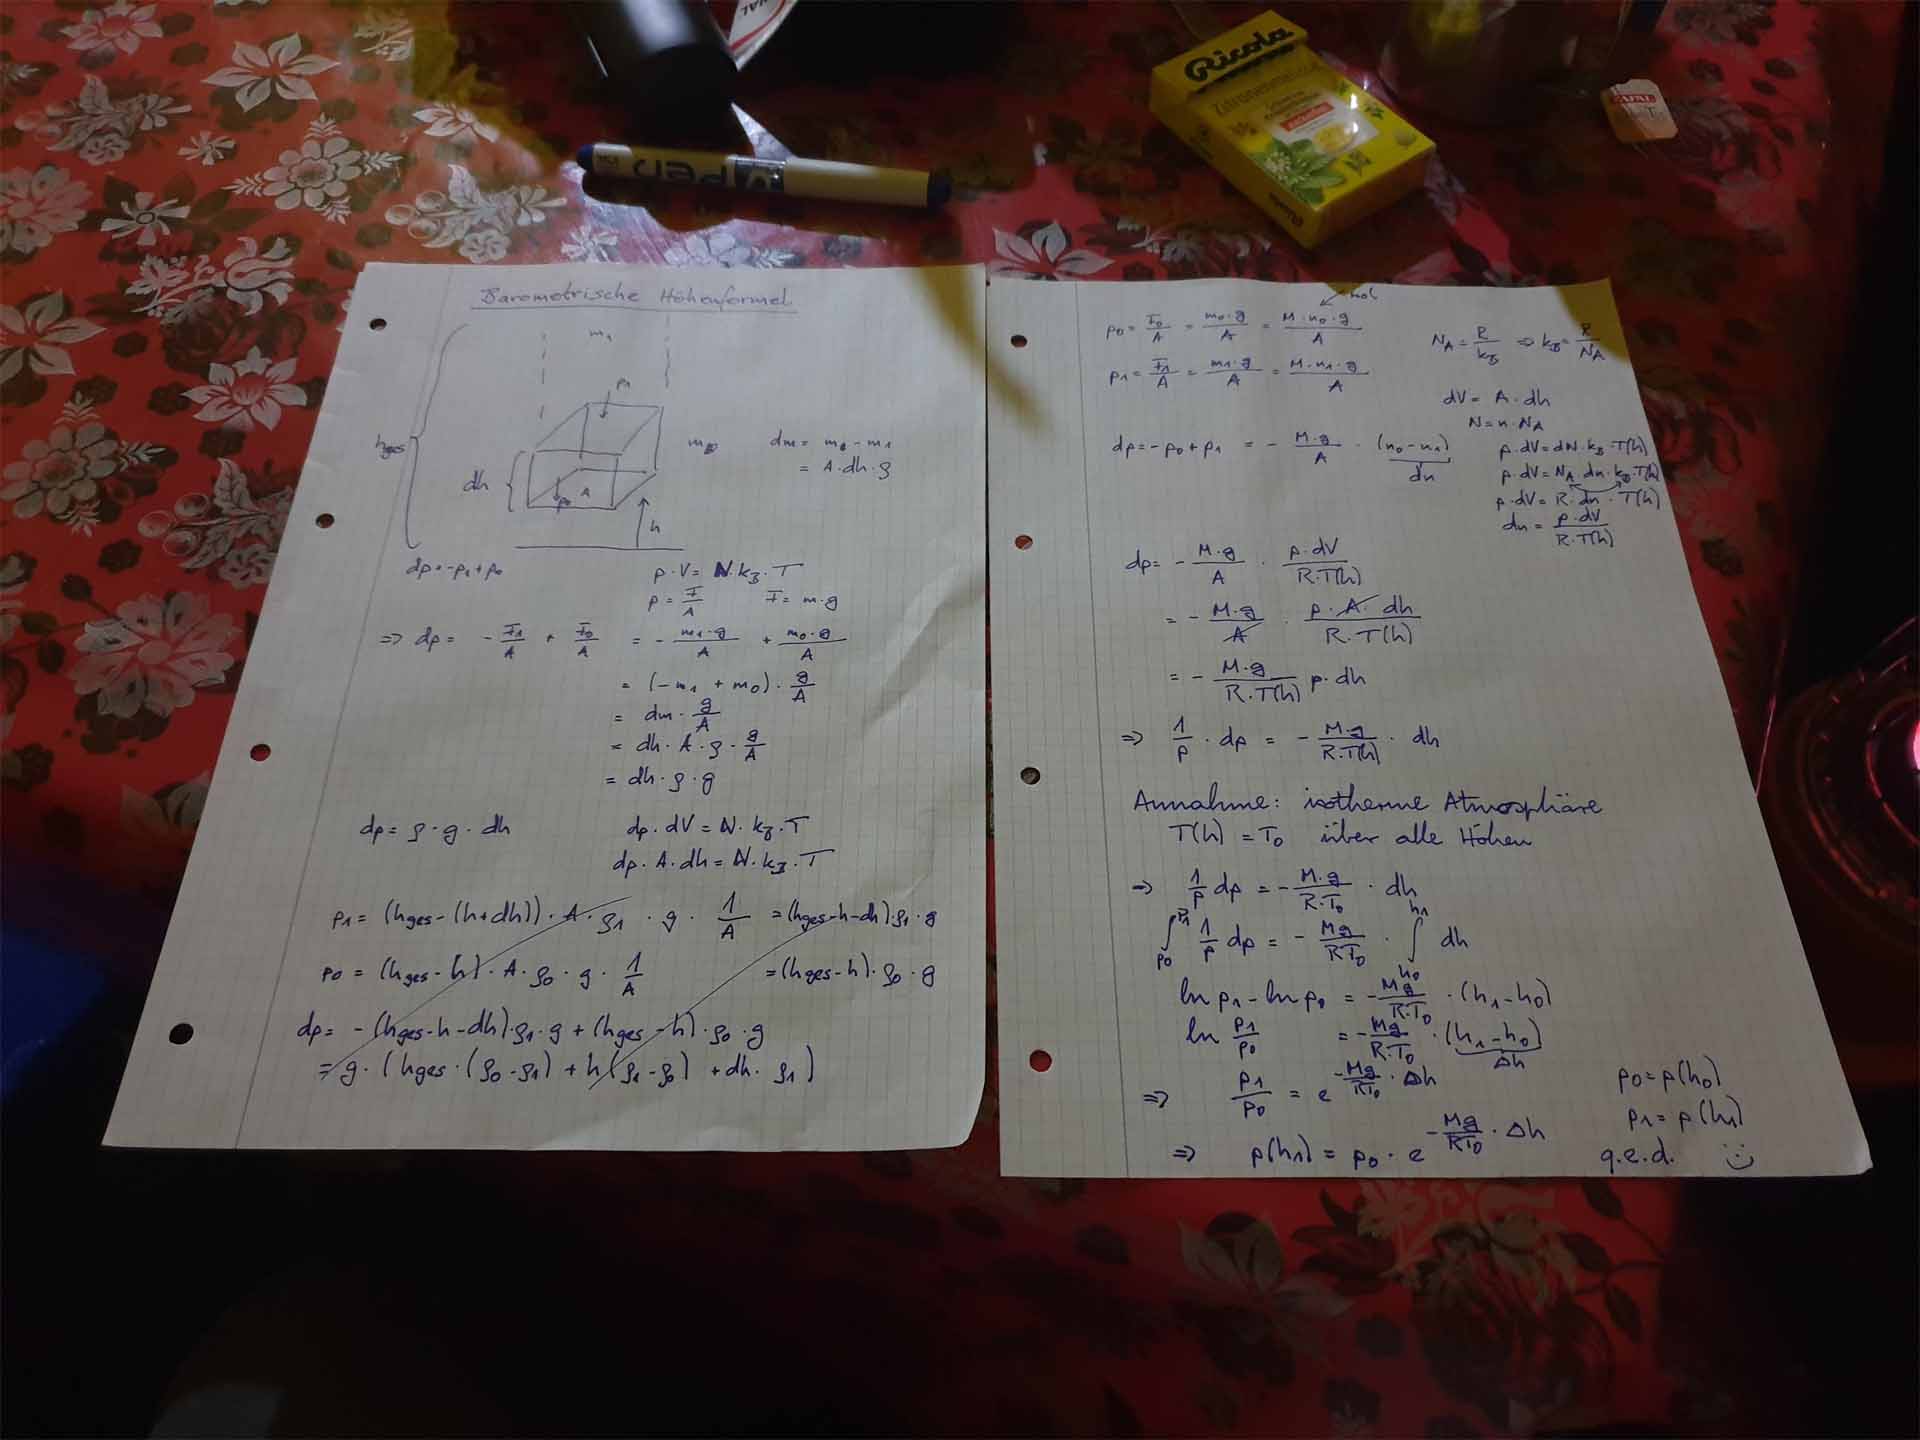 Ricola
Zitronenmelisse
PEN
Barometrische Höhenformel
m₁
p₁
hges
m₀
dm = m₀ - m₁
= A · dh · ρ
dh
p₀
A
h
dp = -p₁ + p₀
p · V = N · k_B · T
p = F/A
F = m · g
=> dp = - F₁/A + F₀/A = - m₁·g/A + m₀·g/A
= (-m₁ + m₀) · g/A
= dm · g/A
= dh · A · ρ · g/A
= dh · ρ · g
dp = ρ · g · dh
dp · dV = N · k_B · T
dp · A · dh = N · k_B · T
p₁ = (hges - (h + dh)) · A · ρ₁ · g · 1/A = (hges - h - dh) · ρ₁ · g
p₀ = (hges - h) · A · ρ₀ · g · 1/A = (hges - h) · ρ₀ · g
dp = -(hges - h - dh) · ρ₁ · g + (hges - h) · ρ₀ · g
= g · (hges · (ρ₀ - ρ₁) + h(ρ₁ - ρ₀) + dh · ρ₁)
mol
p₀ = F₀/A = m₀·g/A = M·n₀·g/A
p₁ = F₁/A = m₁·g/A = M·n₁·g/A
N_A = R/k_B => k_B = R/N_A
dV = A · dh
N = n · N_A
dp = -p₀ + p₁ = - M·g/A · (n₀ - n₁)
dn
p · dV = dN · k_B · T(h)
p · dV = N_A · dn · k_B · T(h)
p · dV = R · dn · T(h)
dn = p·dV/R·T(h)
dp = - M·g/A · p·dV/R·T(h)
= - M·g/A · p·A·dh/R·T(h)
= - M·g/R·T(h) p · dh
=> 1/p · dp = - M·g/R·T(h) · dh
Annahme: isotherme Atmosphäre
T(h) = T₀ über alle Höhen
=> 1/p dp = - M·g/R·T₀ · dh
∫p₀^p₁ 1/p dp = - Mg/RT₀ · ∫h₀^h₁ dh
ln p₁ - ln p₀ = - Mg/R·T₀ · (h₁ - h₀)
ln p₁/p₀ = - Mg/R·T₀ · (h₁ - h₀)
Δh
=> p₁/p₀ = e^(-Mg/RT₀ · Δh)
p₀ = p(h₀)
p₁ = p(h₁)
=> p(h₁) = p₀ · e^(-Mg/RT₀ · Δh)
q.e.d.